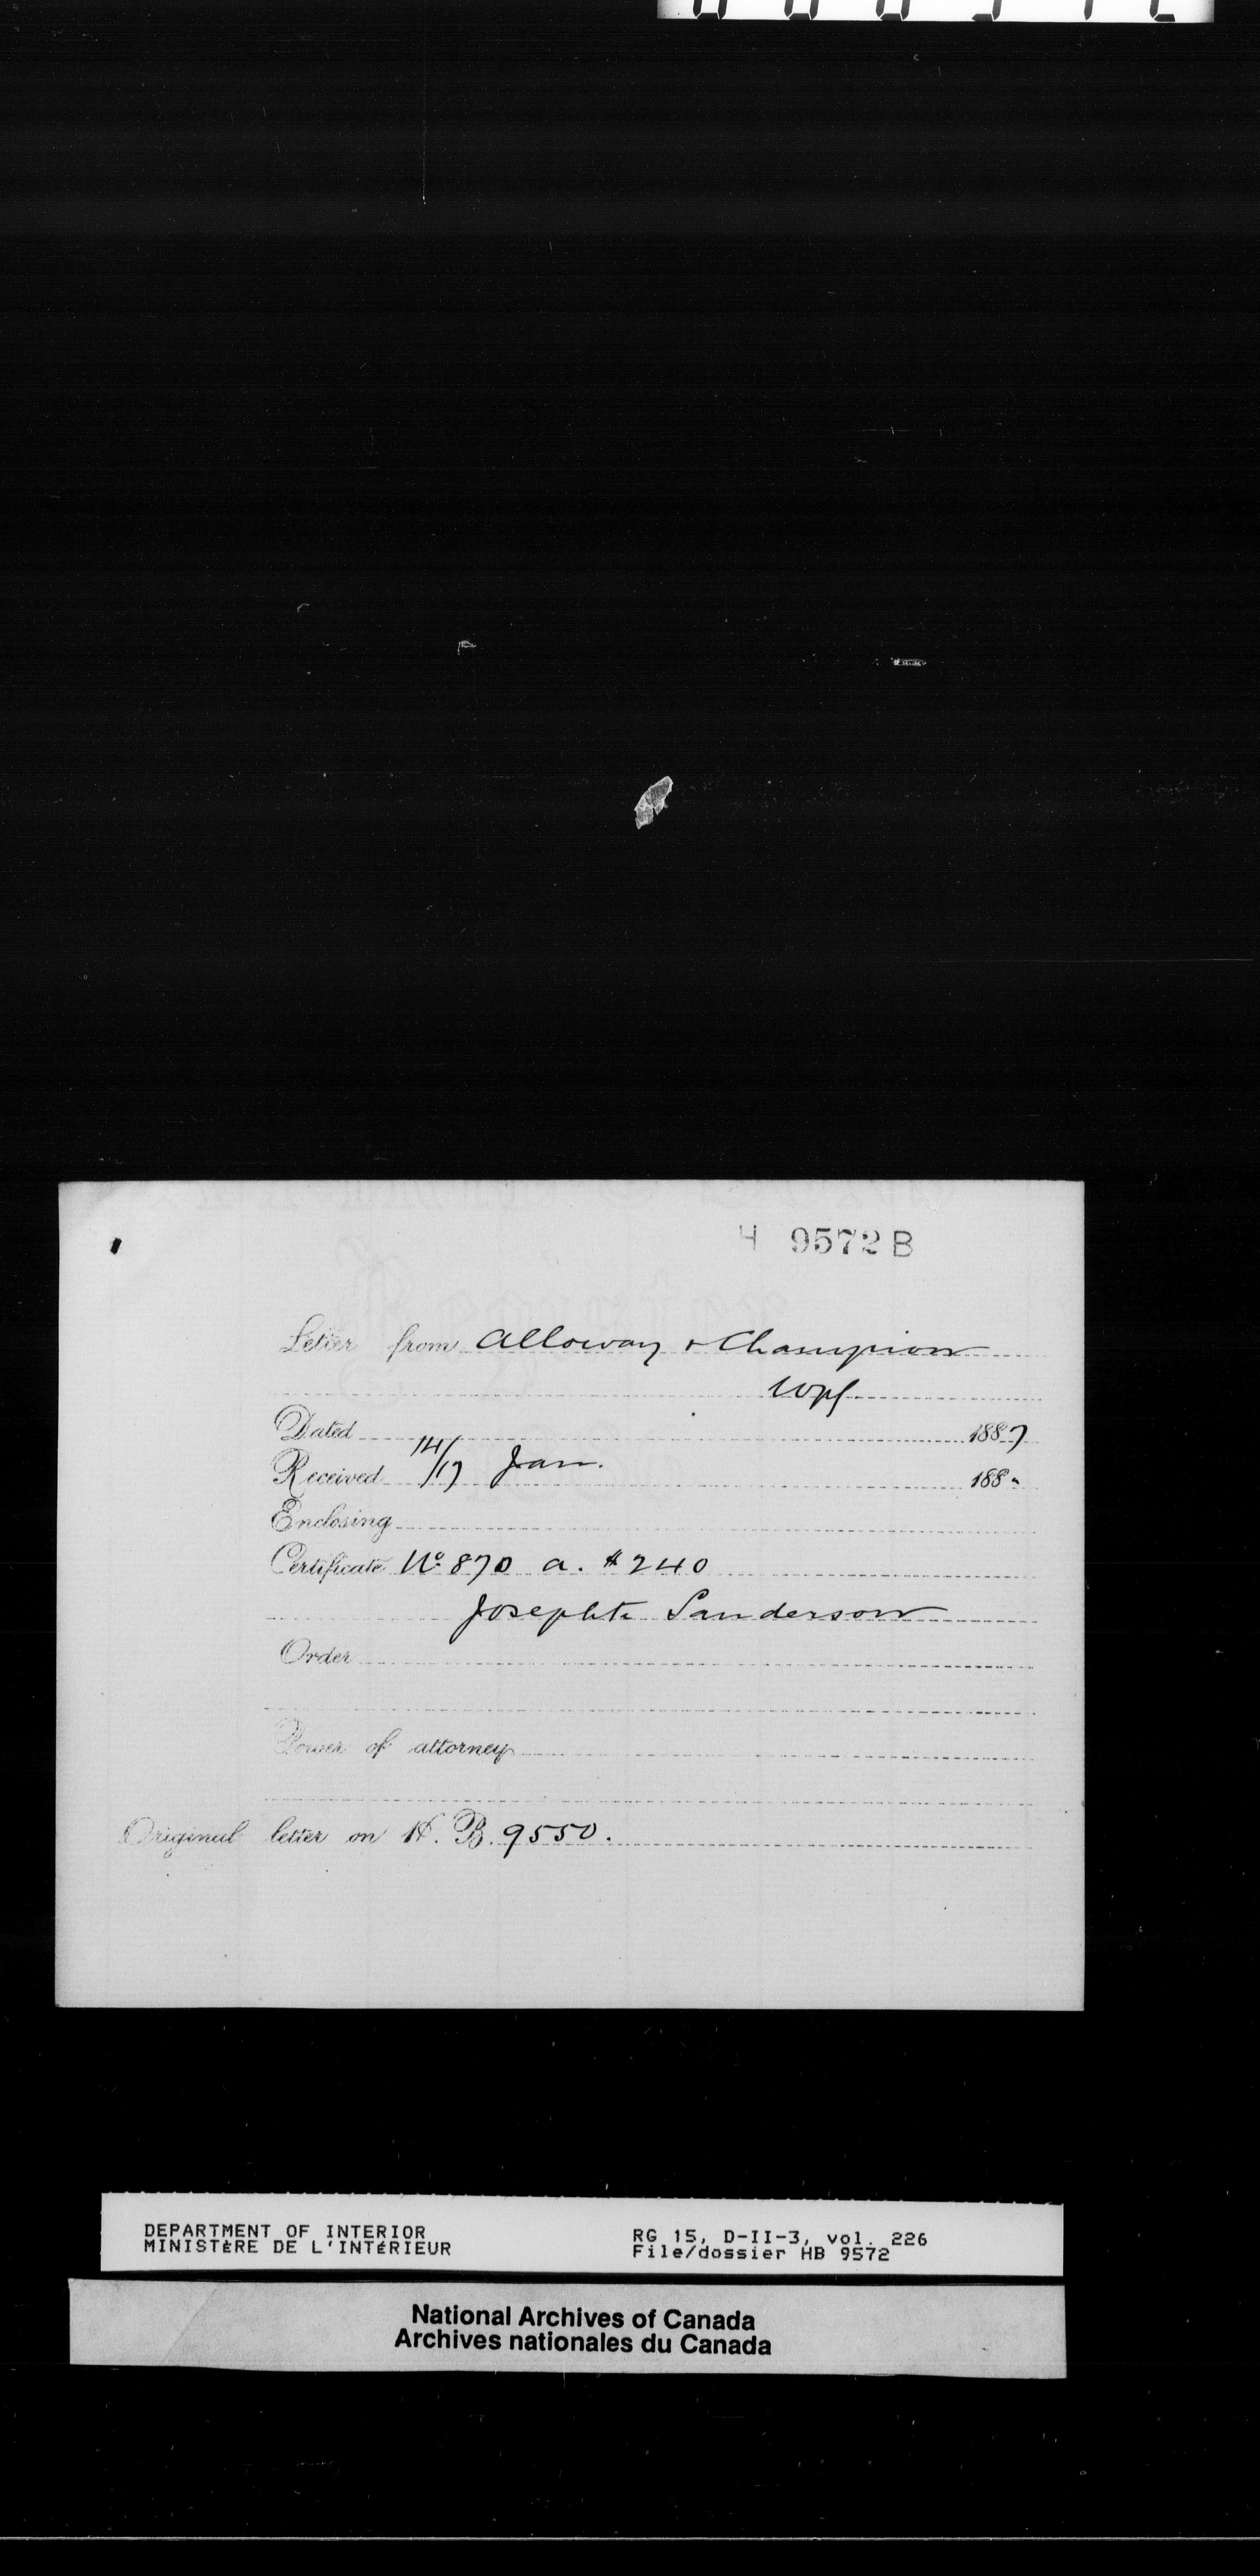 H 9572 B
Letter from Alloway & Champion
Wpg
Dated 1887
Received 14/17 Jan. 188"
Enclosing
Certificate No 870 A. $240
Josephte Sanderson
Order
Power of attorney
Original letter on H. B. 9550.
DEPARTMENT OF INTERIOR RG 15, D-II-3, vol. 226
MINISTÈRE DE L'INTÉRIEUR File/dossier HB 9572
National Archives of Canada
Archives nationales du Canada